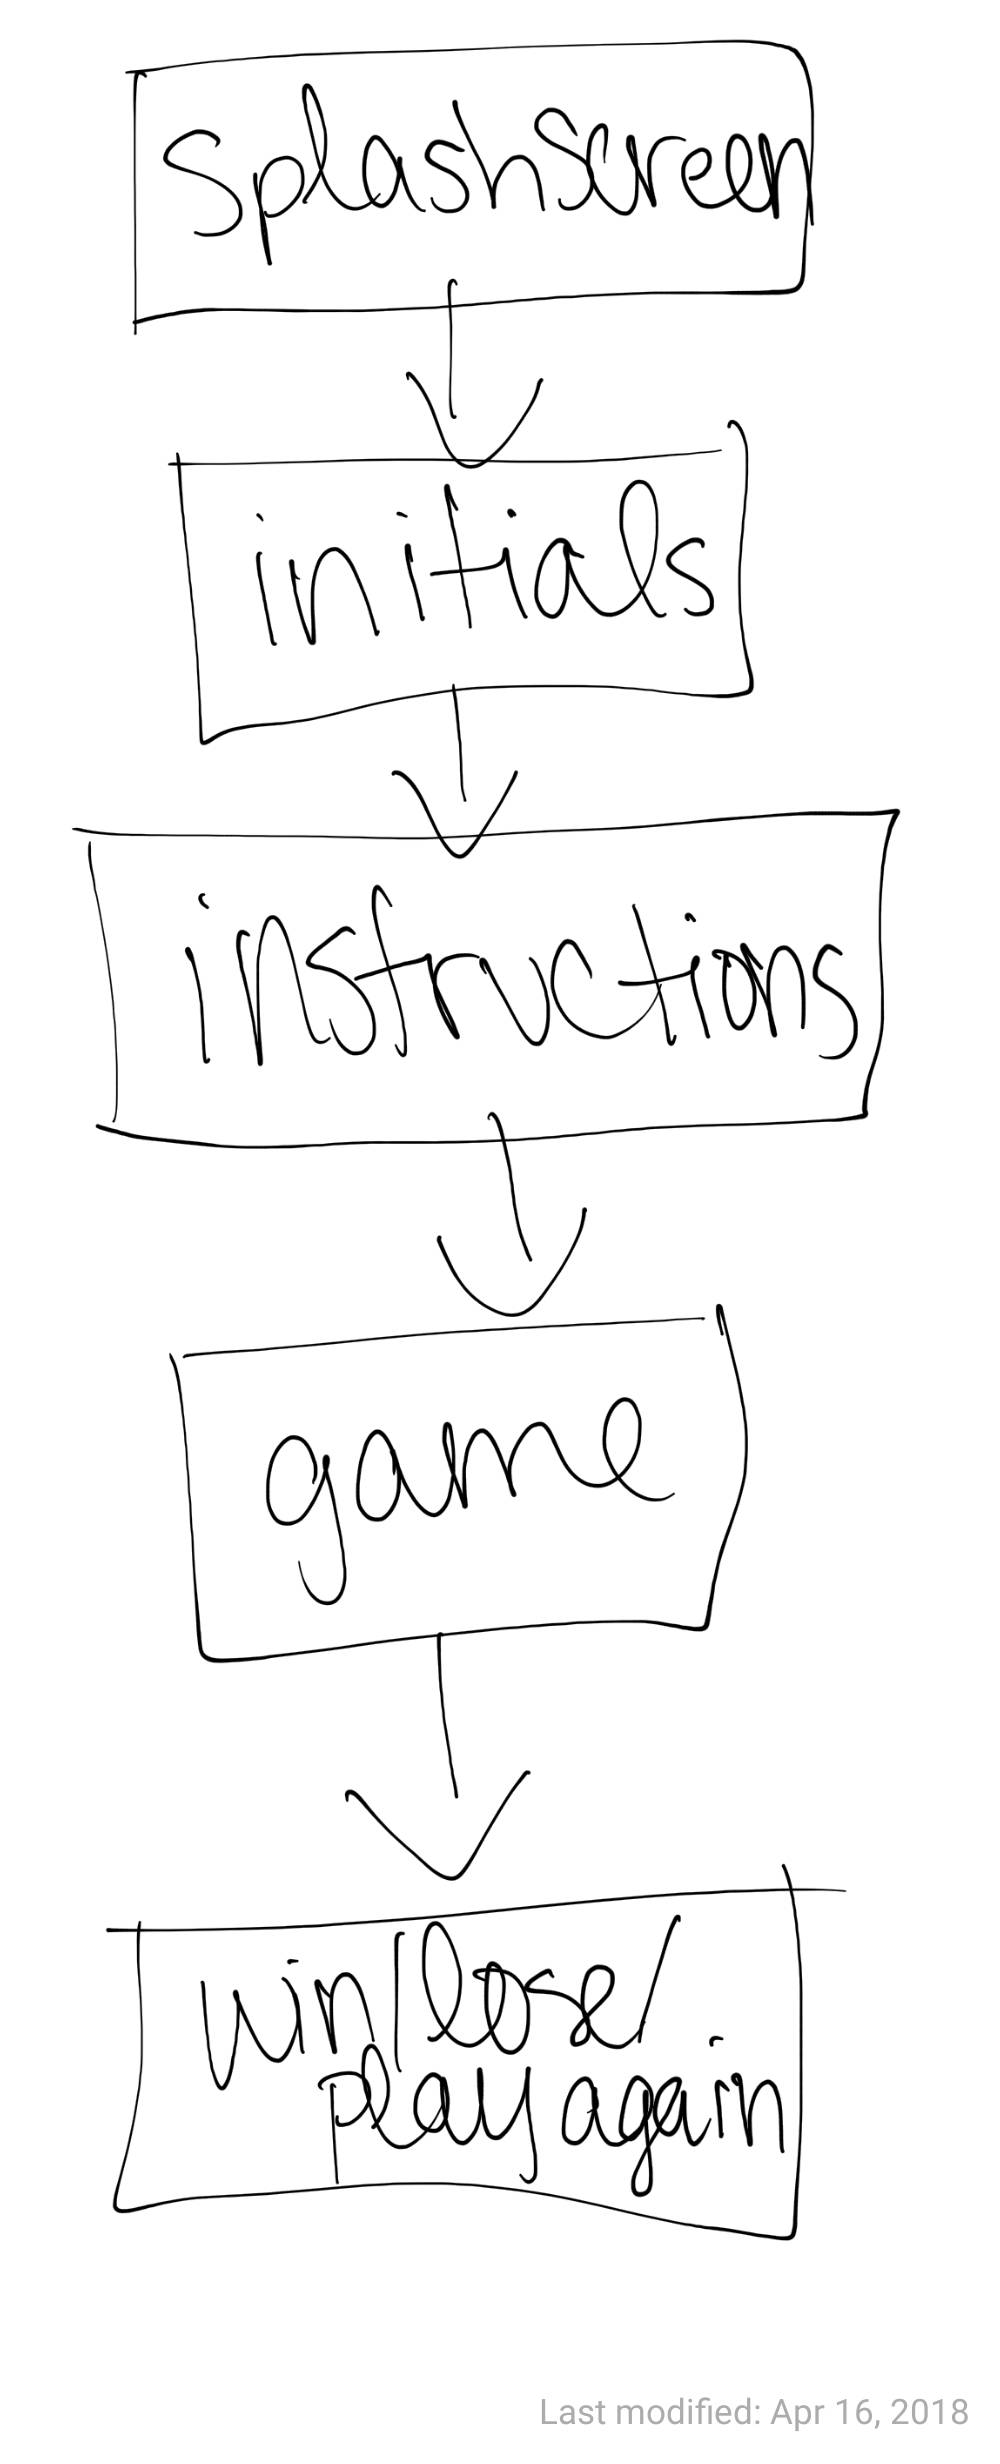 SplashScreen
initials
instructions
game
win/lose/
Play again
Last modified: Apr 16, 2018